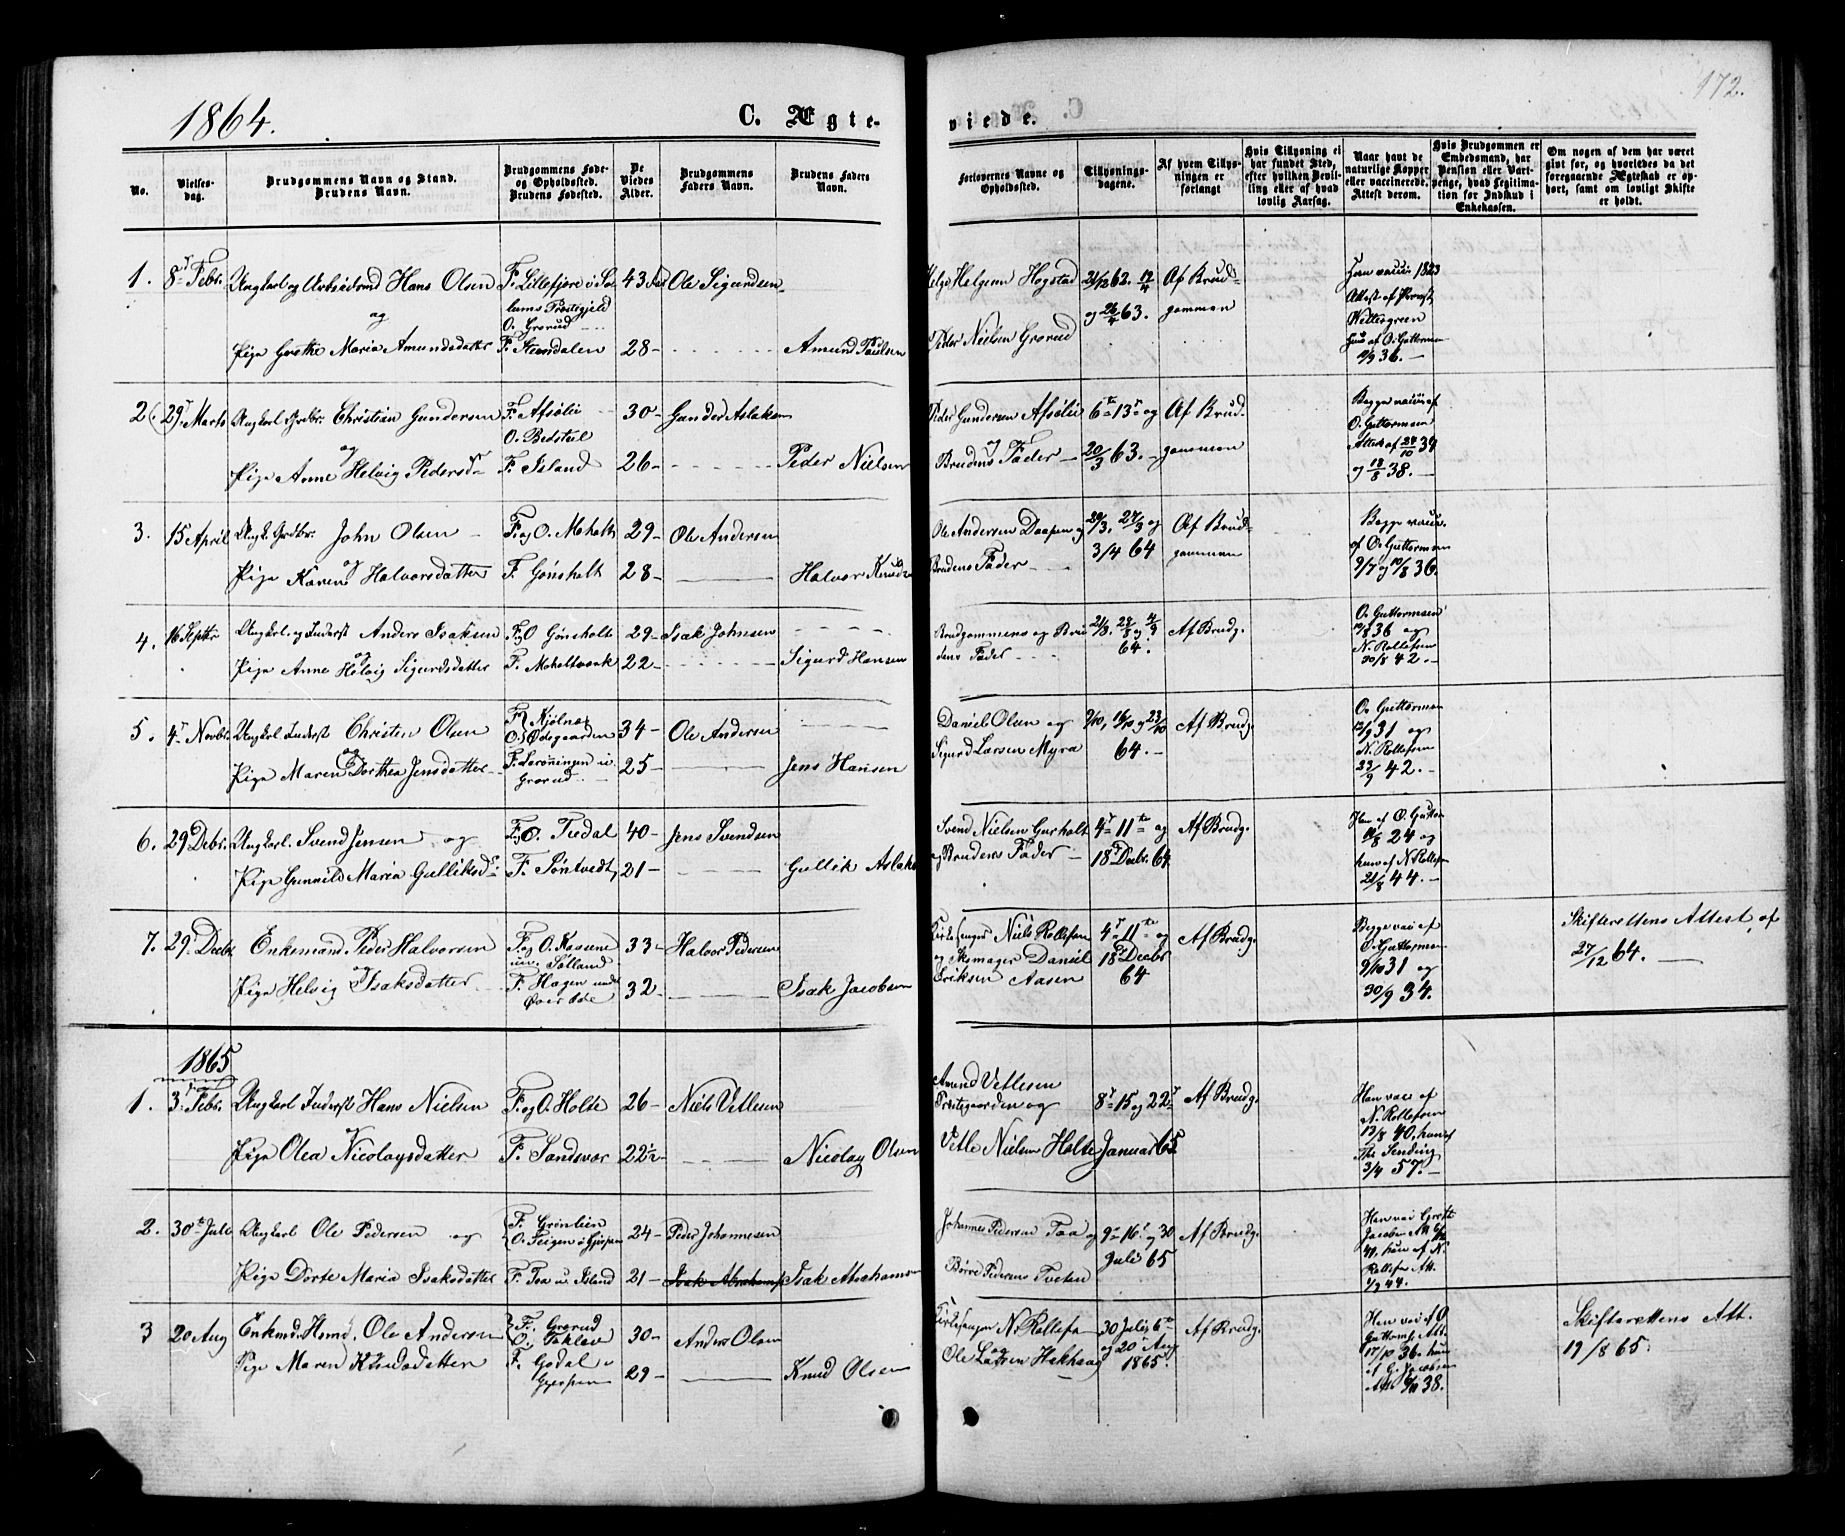 1864.
C. Ægte-
viede.
172.
No.
Vielses-
dag.
Brudgommens Navn og Stand.
Brudens Navn.
Brudgommens Føde-
og Opholdssted.
Brudens Fødested.
De
Viedes
Alder.
Brudgommens
Faders Navn.
Brudens Faders
Navn.
Forlovernes Navne og
Opholdssted.
Tillysnings-
dagene.
Af hvem Tillys-
ningen er
forlangt
Hvis Tillysning ei
har fundet Sted,
efter hvilken Bevil-
ling eller af hvad
lovlig Aarsag.
Naar havt de
naturlige Kopper
eller vaccinerede.
Attest derom.
Hvis Brudgommen er
Embedsmand, har
Pension eller Vart-
penge, hvad Legitima-
tion for Indskud i
Enkekassen.
Om nogen af dem har været
gift før, og hvorledes da det
foregaaende Ægteskab er op-
hørt, samt om lovligt Skifte
er holdt.
1. 8 Febr. Ungkarl og Arbeidsmd Hans Olsen F. Lillefjære i So- 43 Ole Sigurdsen Helge Helgesen Hogstad 21/12 62. Af Brud-
lums Præstegjeld
og O. Grorud og 26/4 63. gommen
Pige Grethe Maria Amundsdatter F. Steensdalen 28 Amund Paulsen Peder Nielsen Grorud
1823
Attest af Provst
Wettergreen
hun af O. Guttormsen
36.
2 29 Marts Ungkarl Grdbr. Christian Gundersen F. Afsølie 30 Gunder Aslaksen Peder Gundersen Afsølie 6te 13 og Af Brud-
og O. Bedstul
Pige Anne Helvig Pedersd F. Island 26 Peder Nielsen Brudens Fader 20/3 63. gommen
Begge vacc af
O. Guttormsen
Attest af 24/10 39
og 12/8 38.
3. 15 April Ungk. Grdbr. John Olsen F. og O. Moholt 29 Ole Andersen Ole Andersen Daapen og 20/3, 27/3 og Af Brud-
og 3/4 64 gommen
Pige Karen Halvorsdatter F. Gønsholt 28 Halvor Knuds Brudens Fader
Begge vacc.
af O. Guttormsen
9/7 og 10/8 36.
4. 16 Septbr Ungkarl og Inderst Anders Isaksen F. og O Gønsholt 29 Isak Johnsen Brudgommens og Bru- 21/8, 28/8 og 4/9 Af Brudg.
og 64.
Pige Anne Helvig Sigurdsdatter F. Moholtværk 22 Sigurd Hansen dens Fader
O. Guttormsen
36 og
N. Rollefsen
30/8 42.
5. 4 Novbr. Ungkarl Inderst Christen Olsen F. Kjølnæs 34 Ole Andersen Daniel Olsen og 9/10, 16/10 og 23/10 Af Brudg.
og O. Ødegaarden 64.
Pige Maren Dorthea Jensdatter 25 Jens Hansen Sigurd Larsen Myra
Grorud
O. Guttormsen
12/9 31 og
N. Rollefsen
23/9 42.
6. 29 Debr. Ungkarl. Svend Jensen og F. og O. Tredal 40 Jens Svendsen Svend Nielsen Gurholt 4 11te og Af Brudg.
Pige Gunnild Maria Gulliksd F. Tøntvedt 21 Gullik Aslaks og Brudens Fader 18 Decbr. 64.
Han af O. Guttor
24 og
hun af N. Rollefsen
21/8 44.
7. 29 Decbr Enkemand Peder Halvorsen F. og O. Kaasene 33 Halvor Pedersen Kirkesanger Niels Rollefsen 4 11te og Af Brudg.
og un. Sølland og Skomager Daniel 18 Decbr
Pige Helvig Isaksdatter F. Hagen under 32 Isak Jacobsen Eriksen Aasen 64
Begge vacc af
O. Guttormsen
9/10 31 og
30/9 34.
Skifterettens Attest af
27/12 64.
1865
1. 3 Febr. Ungkarl Inderst Hans Nielsen F. og O. Holte 26 Niels Vetlesen Amund Vetlesen
Præstegaarden og 8 15 og 22 Af Brudg.
og
Pige Olea Nicolaysdatter F. Sandsvær 22½ Nicolay Olsen Vetle Nielsen Holte Januar 65.
Han vacc af
N. Rollefsen
13/8 40, hun af
3/4 57.
2. 30te Juli Ungkarl Ole Pedersen og F. Grønlien 24 Peder Johannesen Johannes Pedersen Taa og 9 16 og 30 Af Brudg.
O. Teigen i Gjerpen Juli 65
Pige Dorte Maria Isaksdatter F. Taa u. Island 21 Isak Abrahams Isak Abrahamsen Børre Pedersen Tveten
Han vac Grøtte
Jacobsen Att.
40, hun af N.
Rollefsen Att.
44.
3 20 Aug Enkemd. Huusmd. Ole Andersen F. Grorud 30 Anders Olsen Kirkesanger N. Rollefsen 30 Juli, 6te Af Brudg.
og O. Taklev og og 20 Aug
Pige Maren Knudsdatter F. Godal i 29 Knud Olsen Ole Larsen Hakhaug 1865.
Gjerpen
Han vac af O.
Guttorms Att.
17/10 36, hun
af G. Jacobsen
Att. 38.
Skifterettens Att.
19/8 65.